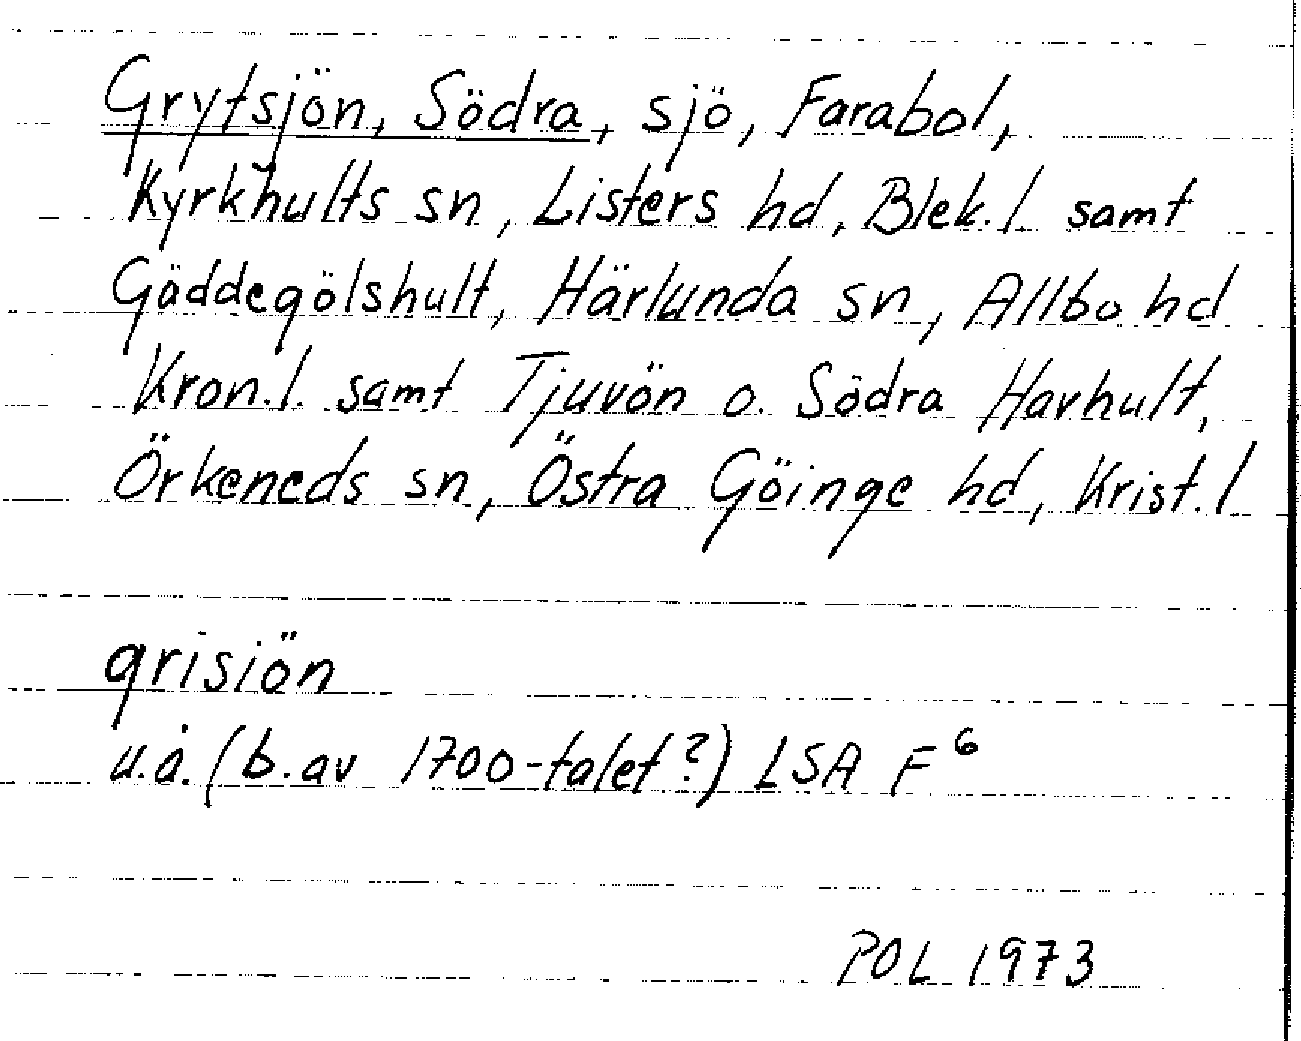 Grytsjön, Södra, sjö, Farabol,
Kyrkhults sn, Listers hd, Blek. l. samt
Gäddegölshult, Härlunda sn, Allbo hd
Kron. l. samt Tjuvön o. Södra Havhult,
Örkeneds sn, Östra Göinge hd, Krist. l
grisiön
u.å. (b. av 1700-talet?) LSA F⁶
POL 1973